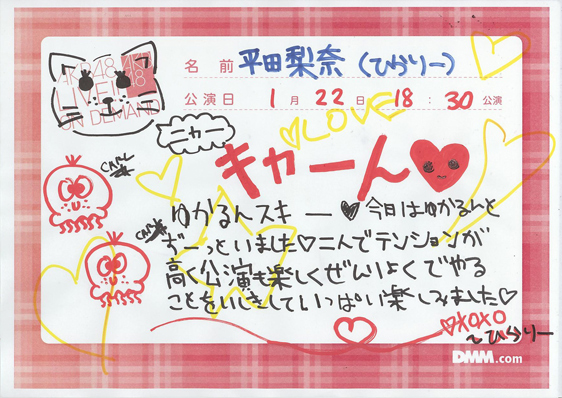 AKB48
LIVE!!
ON DEMAND
名前 平田梨奈(ひらりー)
公演日 1月22日 18:30公演
ニャー
LOVE
キャーん
ゆかるんスキー♥今日はゆかるんと
ずーっといました♡二人でテンションが
高く公演も楽しくぜんりょくでやる
ことをいしきしていっぱい楽しみました♡
♡XOXO
〜ひらりー
DMM.com